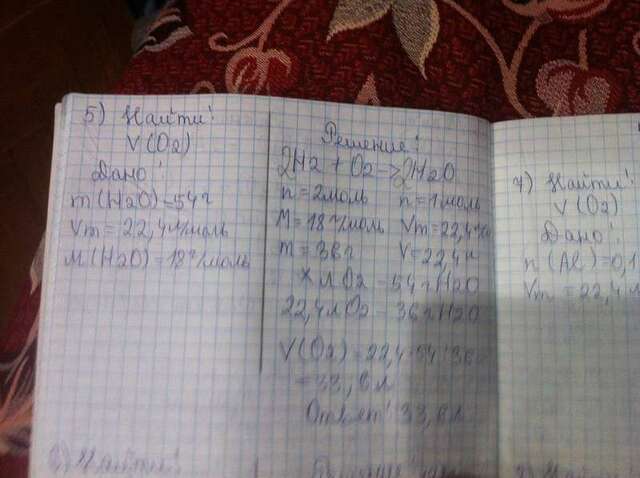 5) Найти:
V(O2)
Дано:
m(H2O)=54г
Vm=22,4 л/моль
M(H2O)=18г/моль
Решение:
2H2+O2=>2H2O
n=2моль n=1моль
M=18г/моль Vm=22,4
m=36г V=22,4л
x л O2 - 54г H2O
22,4л O2 - 36г H2O
V(O2)=22,4·54:36
=33,6л
Ответ: 33,6л
4) Найти:
V(O2)
Дано:
n(Al)=0,1
Vm=22,4
6) Найти: